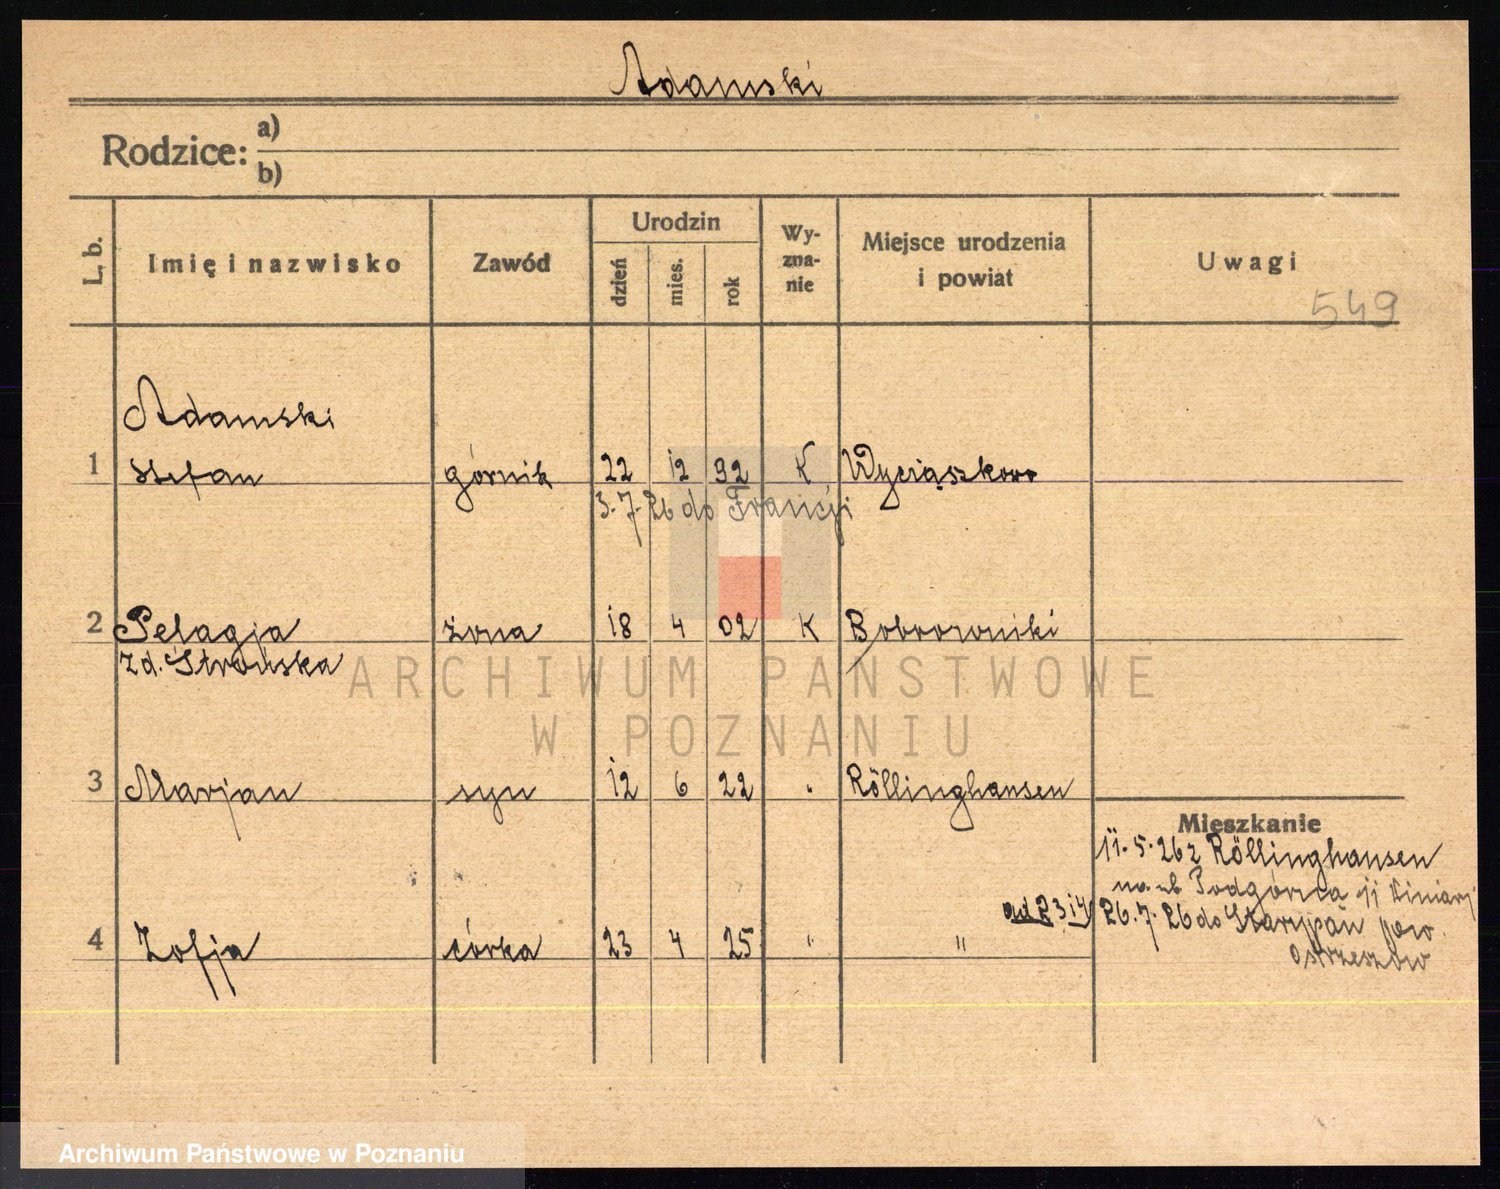 Adamski
Rodzice: a)
b)
L. b. Imię i nazwisko Zawód Urodzin dzień mies. rok Wy-zna-nie Miejsce urodzenia i powiat Uwagi
549
Adamski
1 Stefan górnik 22 12 92 K Wyciąszkowo
3.7.26 do Francji
2 Pelagja żona 18 4 02 K Bobrowniki
zd. Strońska
ARCHIWUM PAŃSTWOWE
W POZNANIU
3 Marjan syn 12 6 22 " Röllinghausen
Mieszkanie
11.5.26 z Röllinghausen
Podgórna 11
ad 2 3 i 4 26.7.26 do pow.
Ostrzeszów
4 Zofja córka 23 4 25 " "
Archiwum Państwowe w Poznaniu